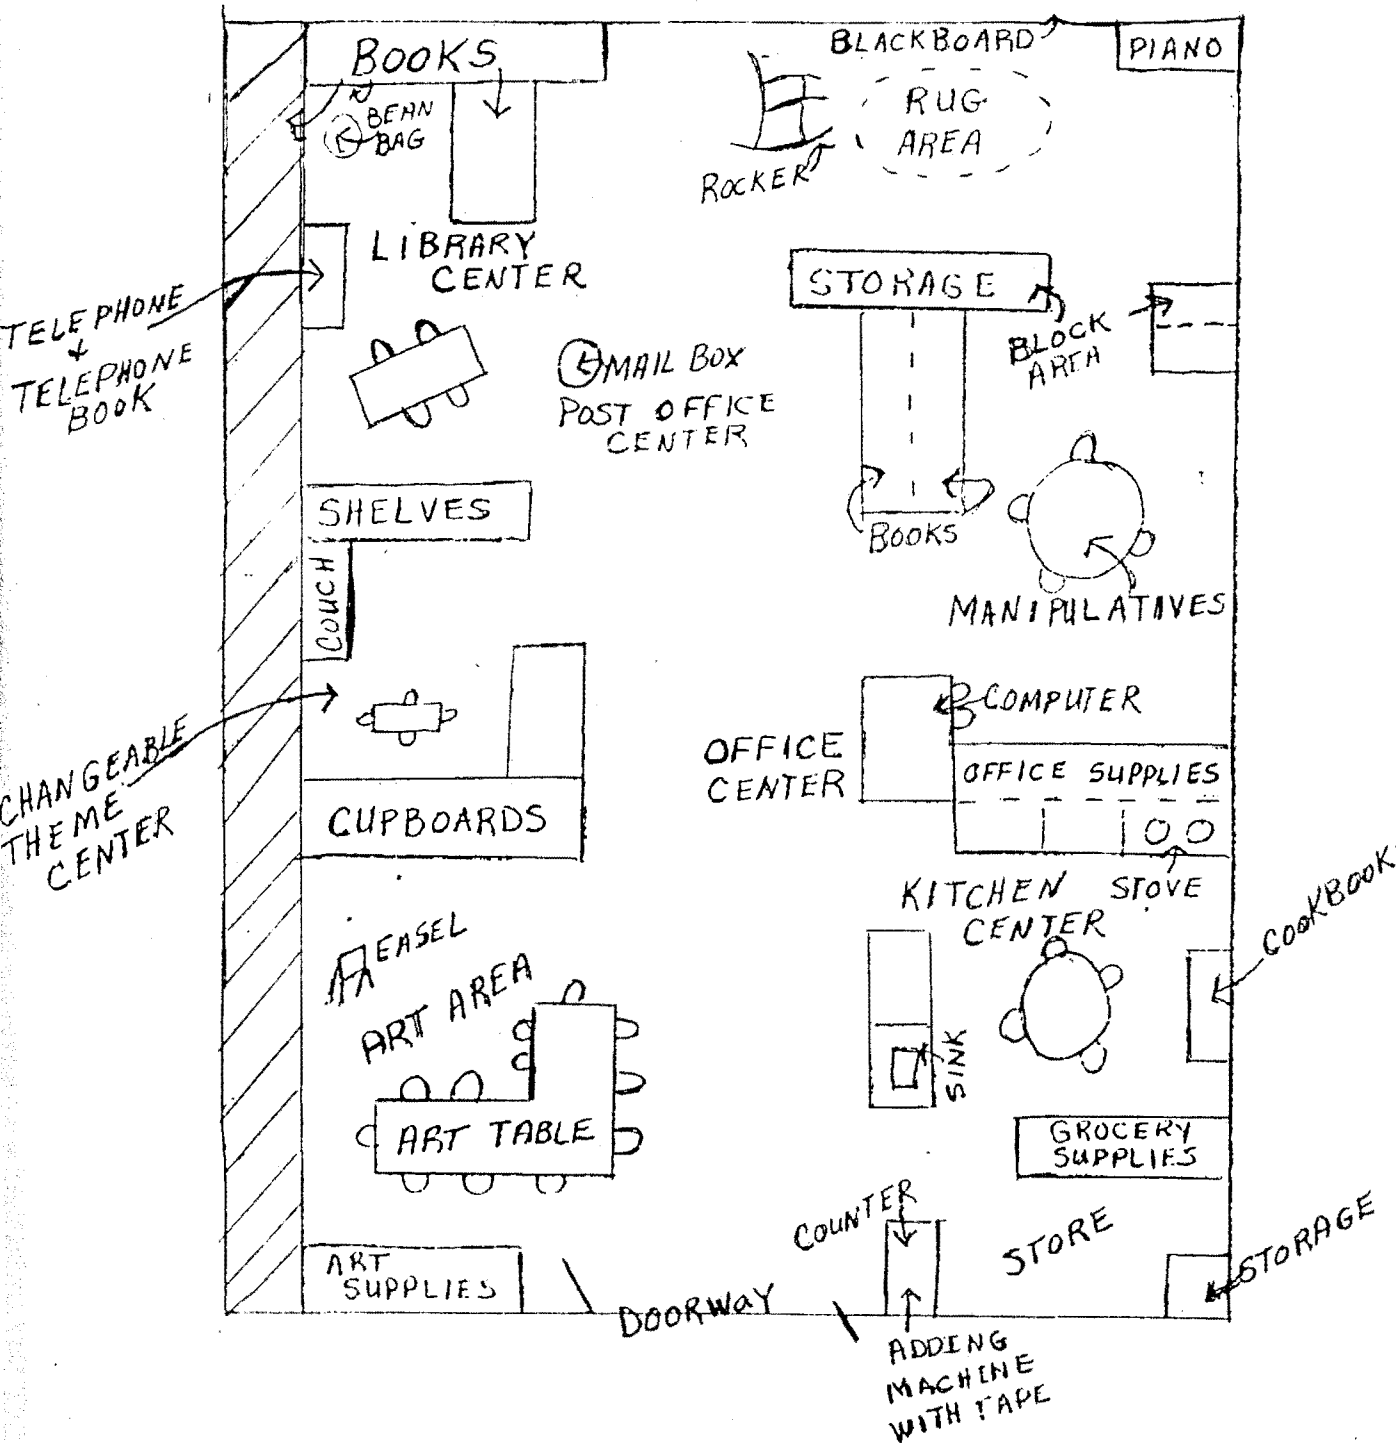 BOOKS
BLACKBOARD
PIANO
BEAN
BAG
RUG
AREA
ROCKER
LIBRARY
CENTER
STORAGE
BLOCK
AREA
TELEPHONE
+
TELEPHONE
BOOK
MAIL BOX
POST OFFICE
CENTER
SHELVES
BOOKS
COUCH
MANIPULATIVES
COMPUTER
OFFICE
CENTER
OFFICE SUPPLIES
CHANGEABLE
THEME
CENTER
CUPBOARDS
KITCHEN
CENTER
STOVE
COOKBOOK
EASEL
ART AREA
SINK
ART TABLE
GROCERY
SUPPLIES
COUNTER
STORE
STORAGE
ART
SUPPLIES
DOORWAY
ADDING
MACHINE
WITH TAPE